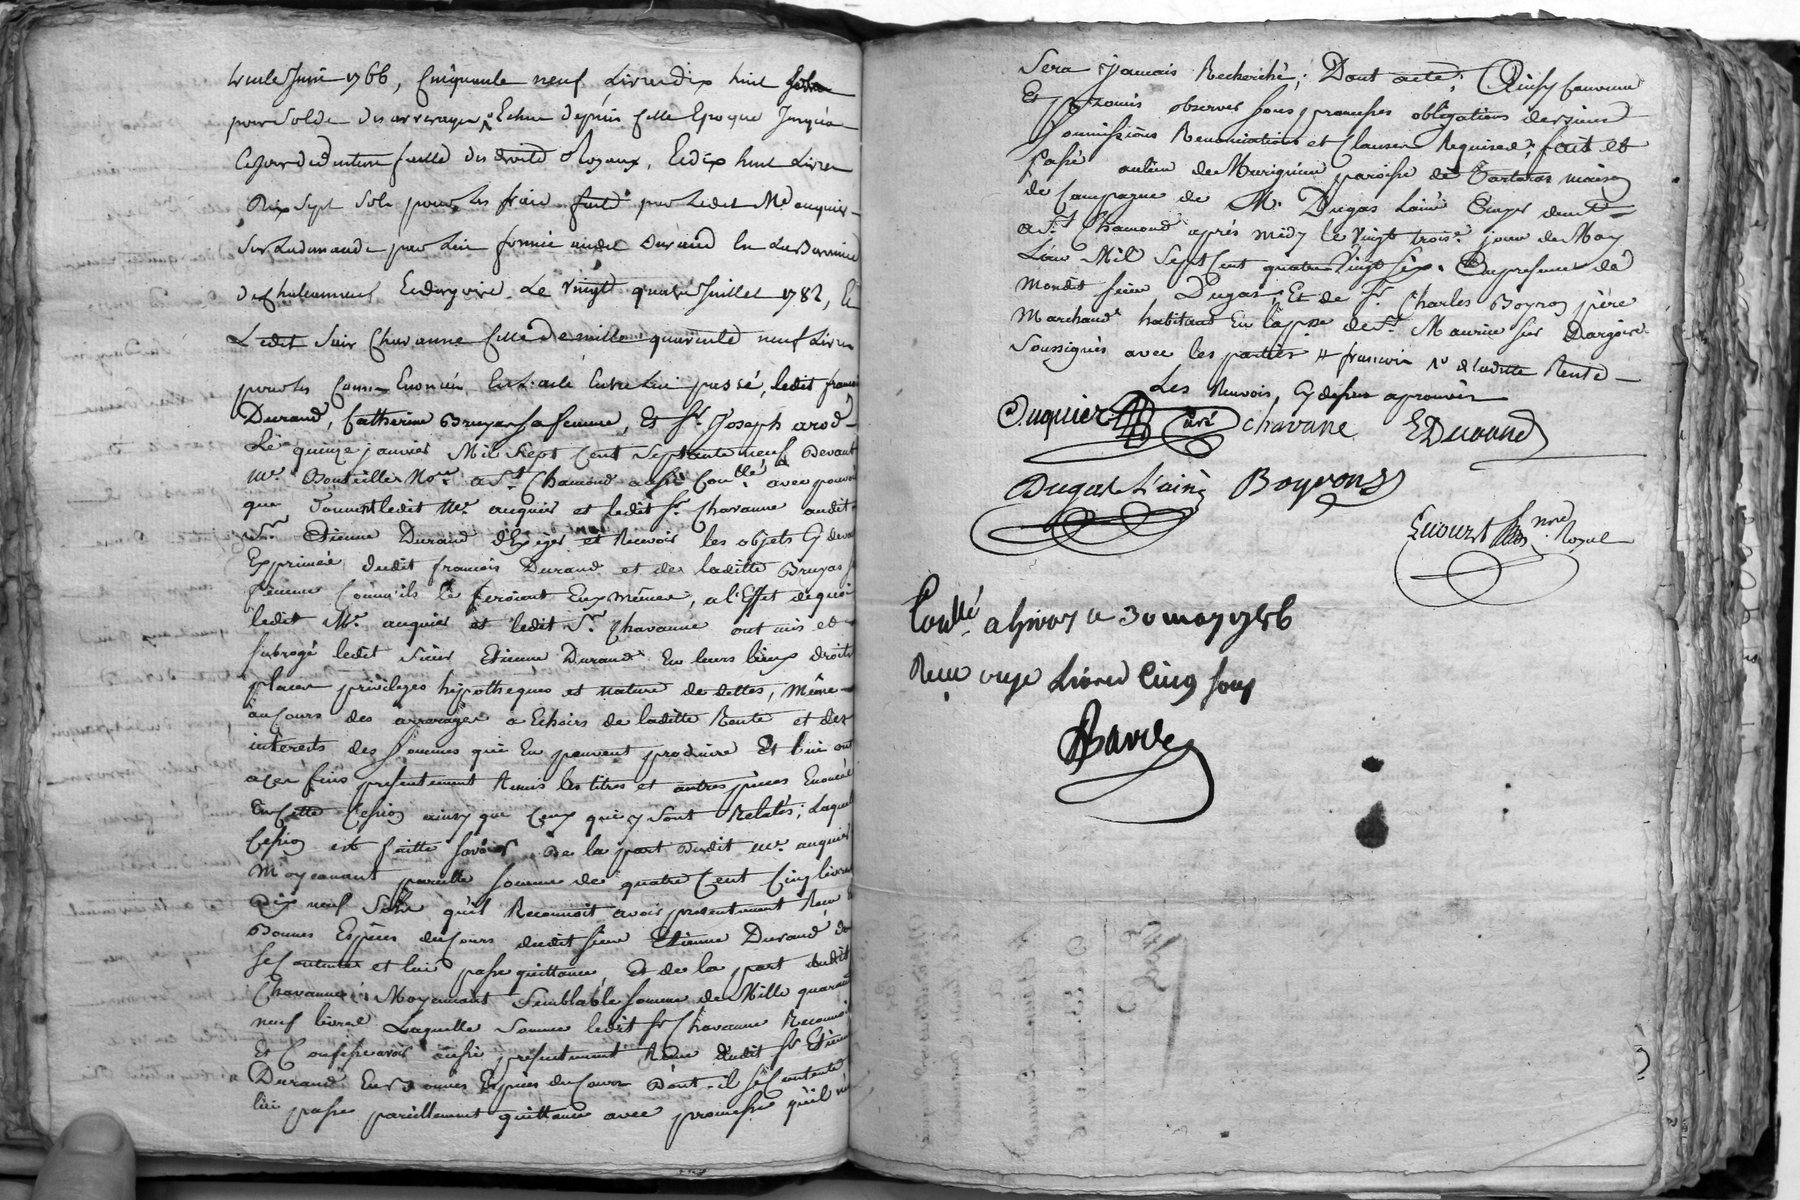 trente Juin 1766, Cinquante neuf Livres dix huit sols
pour Solde des arrerages Echus depuis cette Epoque Jusqu'a
Ce jour deduction faitte des droits Royaux, Et dix huit Livres
Dix Sept Sols pour les frais faits par Ledit Me. auquier
Sur La demande par Lui formée audit Durand En La Baronnie
de chateauneuf Et dargoire Le Vingt quatre Juillet 1782, Et
Ledit Sieur Chavanne Celle de mille quarante neuf Livres
pour les Causes Enoncées En L'acte Entre Lui passé, ledit francois
Durand, Catherine Bruyas sa femme, Et Sr. Joseph arod
Le quinze janvier Mil Sept Cent Septante neuf Devant
Me. Bouteille Nore. a St. Chamond aussi Conllé. avec pouvoir
que donnent ledit Me. auquier et ledit Sr. Chavanne audit
Sr. Etienne Durand d'Exiger et Recevoir les objets Cy devant
Exprimés dudit francois Durand et de laditte Bruyas sa
femme Comm'ils le feroient Eux mêmes, a l'Effet de quoi
ledit Me. auquier et ledit Sr. Chavanne ont mis et
subrogé ledit Sieur Etienne Durand En leurs lieux droits
places privileges hypotheques et nature de dettes, Même
au Cours des arrerages a Echoirs de laditte Rente et des
interets des sommes qui En peuvent produire Et lui ont
a ces fins presentement Remis les titres et autres pieces Enoncés
En Cette Cession ainsy que Ceux qui y Sont Relatés; Laquelle
Cession est faitte savoir De la part Dudit Me. auquier
Moyennant pareille somme de quatre Cent Cinq livres
Dix neuf Sols qu'il Reconnoit avoir presentement Recu En
Bonnes Especes du Cours dudit sieur Etienne Durand dont
se Contente et lui passe quittance, Et de la part dudit
Chavanne Moyennant Semblable somme de Mille quarante
neuf livres Laquelle Somme ledit Sr Chavanne Reconnoit
Et Confesse avoir aussi presentement Recue dudit Sr Etienne
Durand En Bonnes Especes du Cours Dont il se Contente
lui passe pareillement quittance avec promesse qu'il n'en
Sera jamais Recherché; Dont acte; Ainsy convenu
Et promis observer sous promesses obligations des biens
soumissions Renonciations et Clauses Requises; fait et
passé au lieu de paroisse de Tartaras maison
de Campagne de M. Dugas Lainé Ecuyer demt.
a St. Chamond après midy le Vingt trois. jour de May
L'an Mil Sept Cent quatre Vingt six. En presence de
mondit sieur Dugas, Et de Sr. Charles Boyron père
Marchand habitant En la psse de St. Maurice sur Dargoire
Soussignés avec les parties # francois de laditte Rente
Les Renvois Cy dessus aprouvés
auquier Curé chavane E Durand
Dugas L'ainé Boyron
nore. Royal
Conllé. a Givors le 30 may 1786
Recu Livres Cinq sous